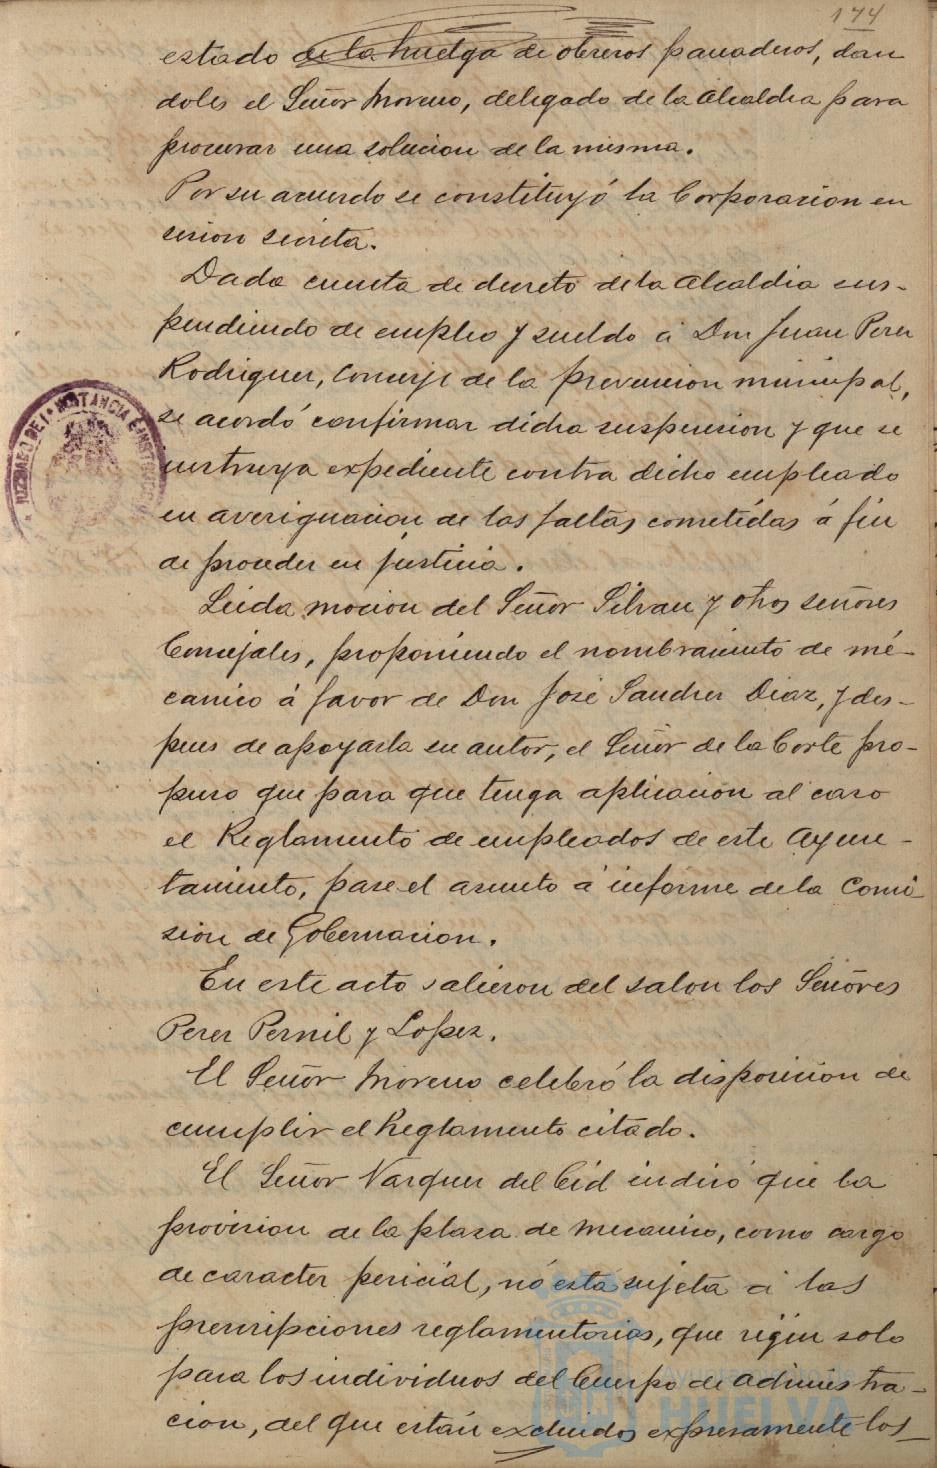 174
estado de la huelga de obreros panaderos, dan
doles el Señor Moreno, delegado de la Alcaldia para
procurar una solucion de la misma.
Por su acuerdo se constituyó la Corporacion en
sesion secreta.
Dada cuenta de decreto de la Alcaldia sus-
pendiendo de empleo y sueldo a Don Juan Perez
Rodriguez, Conserje de la prevencion municipal,
se acordó confirmar dicha suspension y que se
instruya expediente contra dicho empleado
en averiguacion de las faltas cometidas á fin
de proceder en justicia.
Leida mocion del Señor Silvan y otros señores
Concejales, proponiendo el nombramiento de me-
canico á favor de Don José Sanchez Diaz, y des-
pues de apoyarla su autor, el Señor de la Corte pro-
puso que para que tenga aplicacion al caso
el Reglamento de empleados de este Ayun-
tamiento, pase el asunto á informe de la Comi
sion de Gobernacion.
En este acto salieron del salon los Señores
Perez Pernil y Lopez.
El Señor Moreno celebró la disposicion de
cumplir el Reglamento citado.
El Señor Vazquez del Cid indicó que la
provision de la plaza de mecanico, como cargo
de caracter pericial, nó está sujeta á las
prescripciones reglamentarias, que rigen solo
para los individuos del Cuerpo de Administra-
cion, del que están excluidos expresamente los
JUZGADO DE 1ª INSTANCIA É INSTRUCCION
Ayuntamiento de
HUELVA